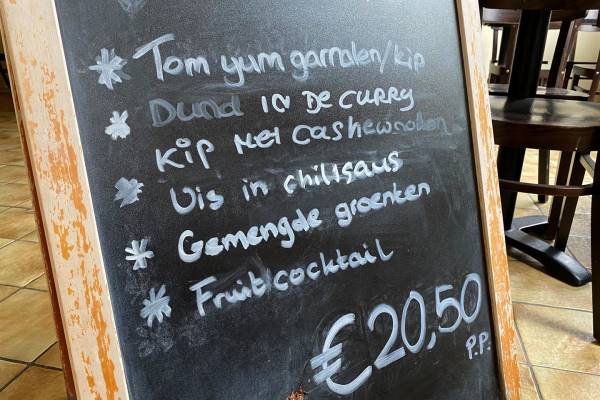 Tom yum garnalen/kip
IN DE CURRY
Kip Met Cashewnoten
Vis in chilisaus
Gemengde groenten
Fruit cocktail
€20,50
P.P.